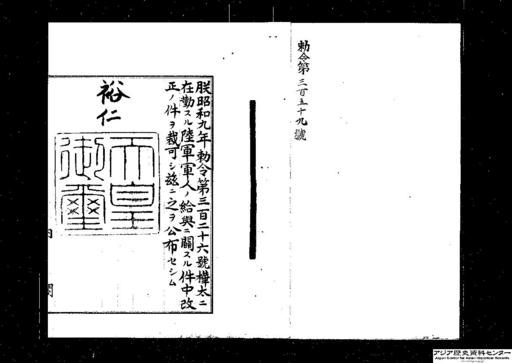 勅令第三百五十九號
朕昭和九年勅令第三百二十六號樺太ニ
在勤スル陸軍軍人ノ給與ニ關スル件中改
正ノ件ヲ裁可シ茲ニ之ヲ公布セシム
裕仁
天皇
御璽
内
閣
アジア歴史資料センター
Japan Center for Asian Historical Records